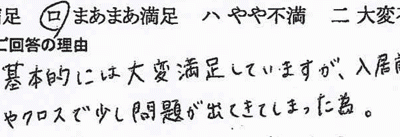 足 ロ まあまあ満足 ハ やや不満 ニ 大変
ご回答の理由
基本的には大変満足していますが、入居前
やクロスで少し問題が出てきてしまった為。